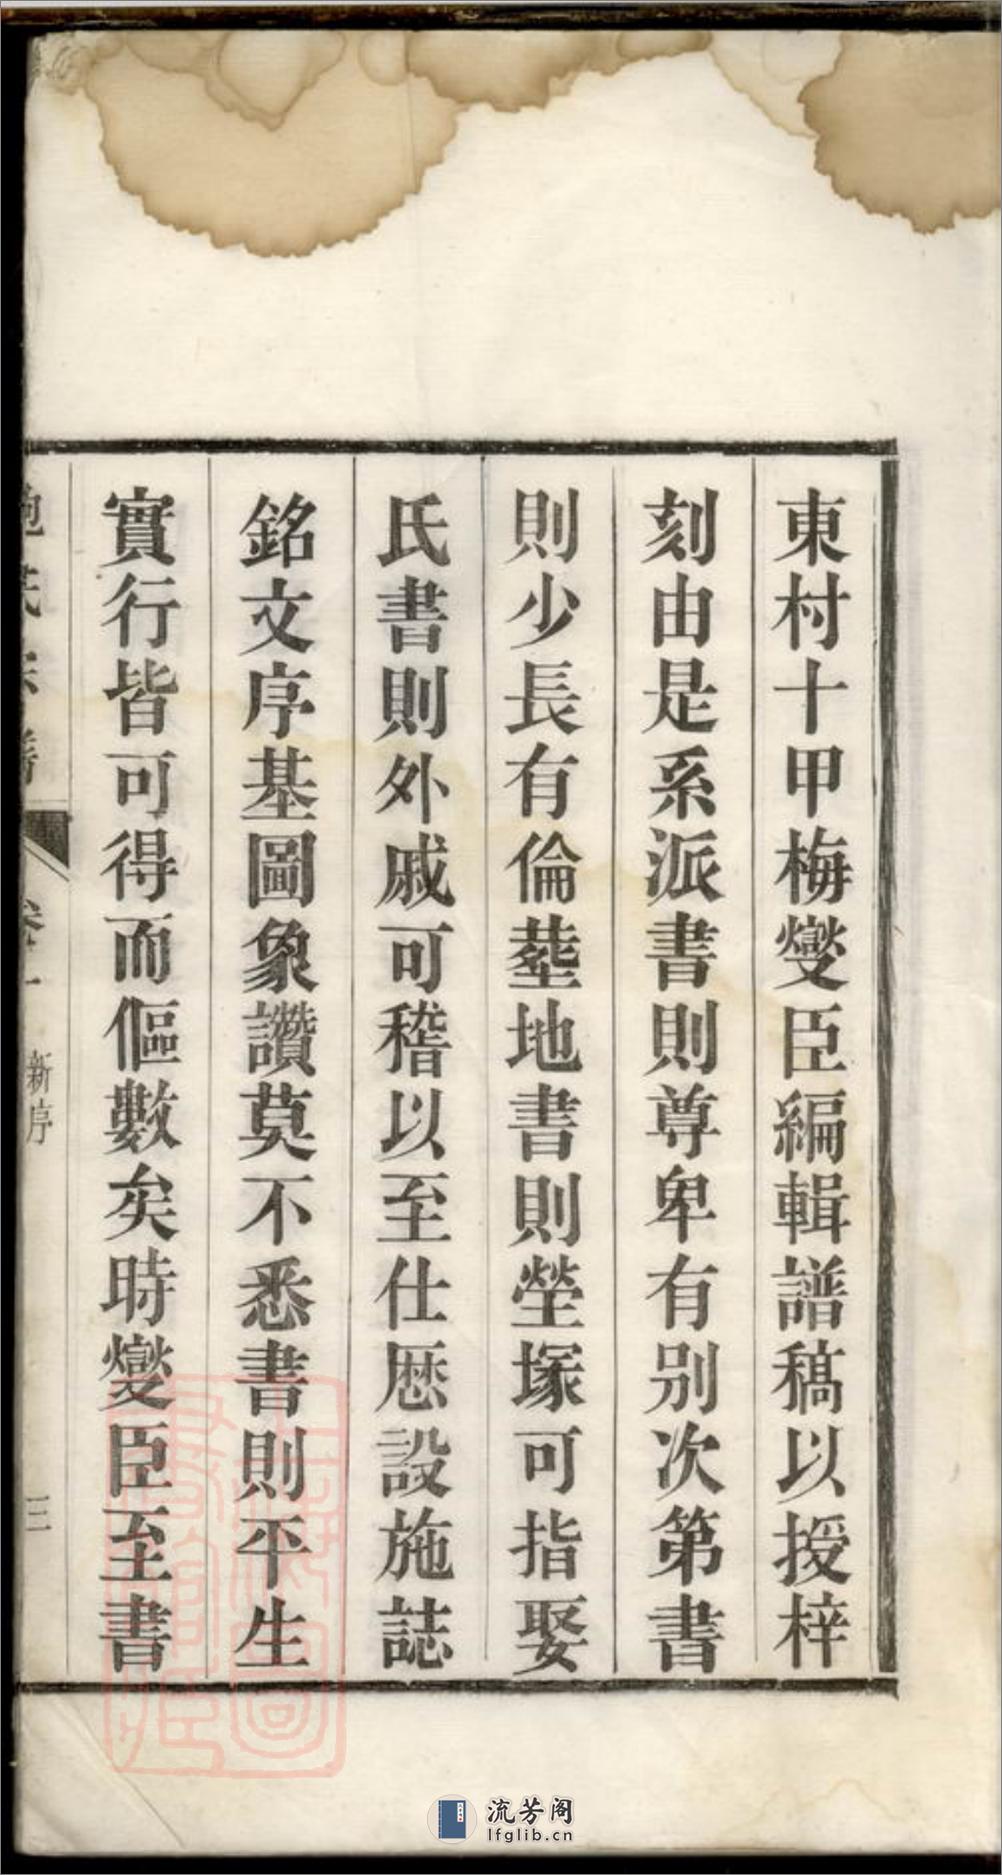 東村十甲梅燮臣編輯譜稿以授梓
刻由是系派書則尊卑有別次第書
則少長有倫塟地書則塋塚可指娶
氏書則外戚可稽以至仕厯設施誌
銘文序基圖象讚莫不悉書則平生
實行皆可得而傴數矣時燮臣至書
鮑氏宗譜
卷一
新序
三
上海圖書館藏
流芳阁
lfglib.cn